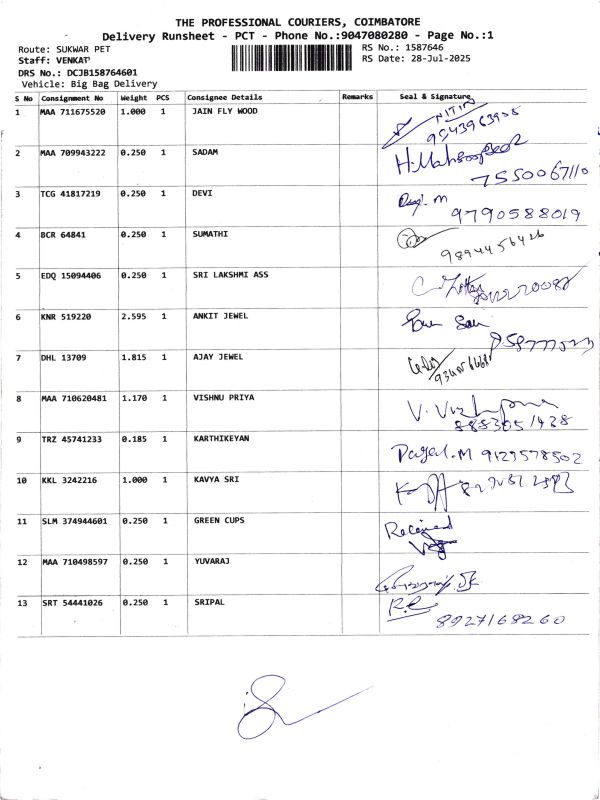 THE PROFESSIONAL COURIERS, COIMBATORE
Delivery Runsheet - PCT - Phone No.:9047080280 - Page No.:1
Route: SUKWAR PET
RS No.: 1587646
Staff: VENKAT
RS Date: 28-Jul-2025
DRS No.: DCJB158764601
Vehicle: Big Bag Delivery
S No Consignment No Weight PCS Consignee Details Remarks Seal & Signature
1 MAA 711675520 1.000 1 JAIN FLY WOOD NITIN
2 MAA 709943222 0.250 1 SADAM
7550067110
3 TCG 41817219 0.250 1 DEVI
9790588019
4 BCR 64841 0.250 1 SUMATHI 9894456426
5 EDQ 15094406 0.250 1 SRI LAKSHMI ASS
6 KNR 519220 2.595 1 ANKIT JEWEL
7 DHL 13709 1.815 1 AJAY JEWEL
8 MAA 710620481 1.170 1 VISHNU PRIYA
8883051428
9 TRZ 45741233 0.185 1 KARTHIKEYAN Payal.M 9129578502
10 KKL 3242216 1.000 1 KAVYA SRI
11 SLM 374944601 0.250 1 GREEN CUPS Received
12 MAA 710498597 0.250 1 YUVARAJ
13 SRT 54441026 0.250 1 SRIPAL
8927168260